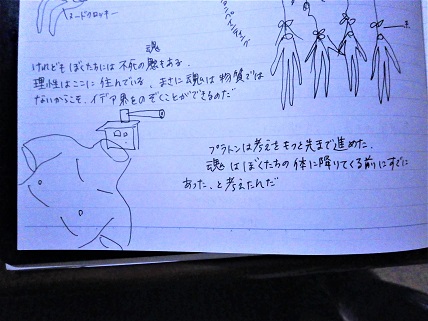 ヌードクロッキー
魂
けれどもぼくたちには不死の魂もある。
理性はここに住んでいる。まさに魂は物質では
ないからこそ、イデア界をのぞくことができるのだ
プラトンは考えをもっと先まで進めた。
魂はぼくたちの体に降りてくる前にすでに
あった、と考えたんだ